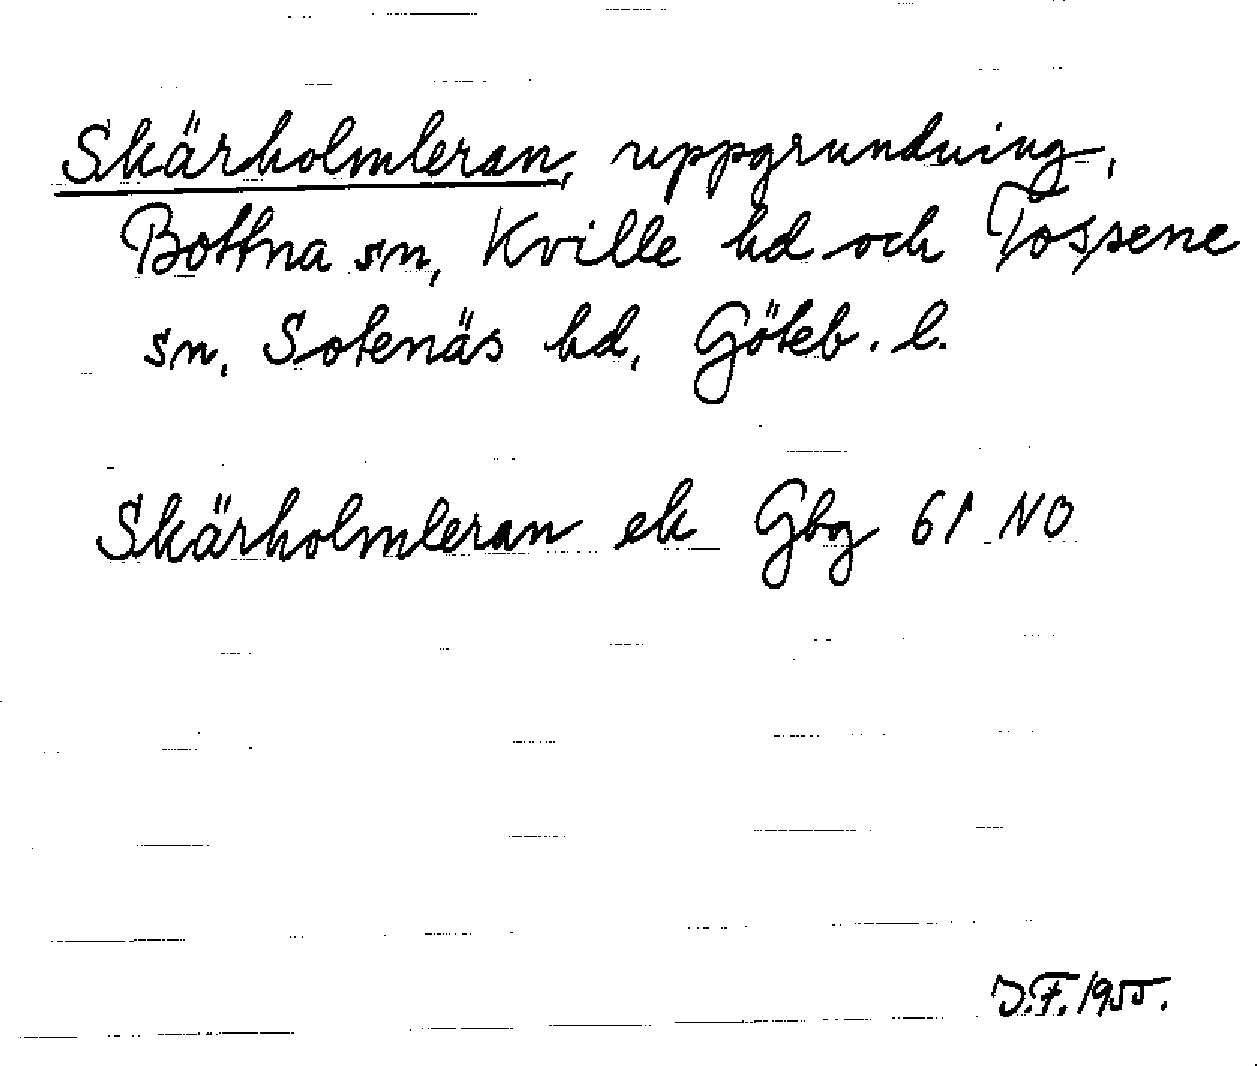 Skärholmleran, uppgrundning,
Bottna sn, Kville hd och Tossene
sn, Sotenäs hd, Göteb. l.
Skärholmleran ek Gbg 61 NO
J.F. 1955.